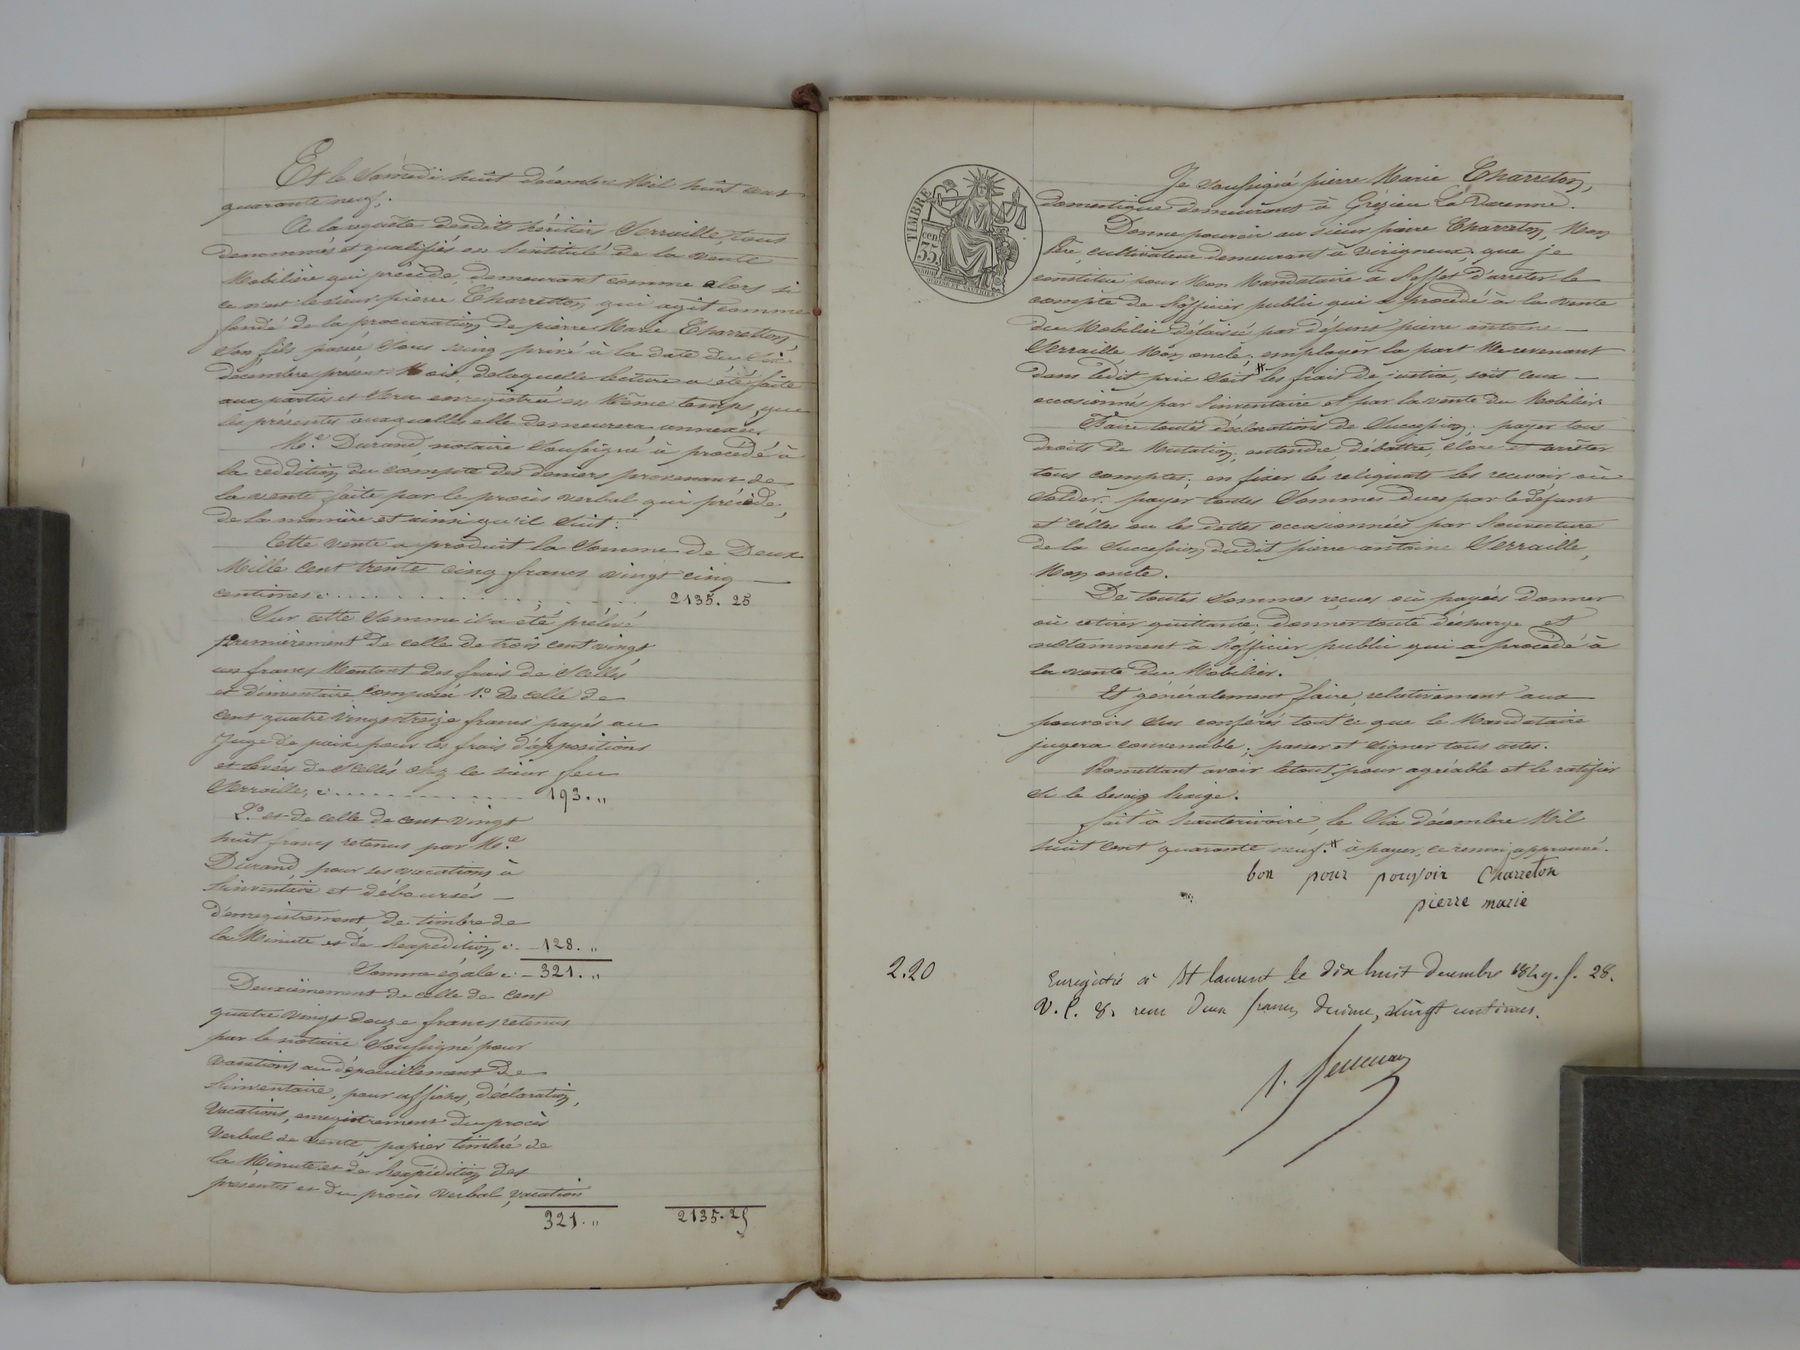 Et le Samedi huit décembre Mil huit cent
quarante neuf.
A la requête desdits héritiers Verraille, tous
denommés et qualifiés en l'intitulé de la vente
Mobilière qui précède, demeurant comme alors si
ce n'est le sieur pierre Charretton, qui agit comme
fondé de la procuration de pierre Marie Charretton,
son fils passée sous seing privé à la date du six
décembre présent Mois, de laquelle lecture a été faite
aux parties et sera enregistrée en même temps que
les présentes auxquelles elle demeurera annexée.
Me Durand, notaire soussigné à procédé à
la reddition du compte des deniers provenant de
la vente faite par le procès verbal qui précède,
de la manière et ainsi qu'il suit:
Cette vente a produit la somme de Deux
Mille cent trente cinq francs vingt cinq
centimes c. 2135. 25
Sur cette somme il a été prélevé
premièrement de celle de trois cent vingt
un francs Montant des frais de scellés
et d'inventaire composée 1.° de celle de
cent quatre vingt treize francs payés au
Juge de paix pour les frais d'appositions
et levées de scellés chez le sieur feu
Verraille, c. 193. "
2.° et de celle de cent vingt
huit francs retenus par Me
Durand, pour ses vacations à
l'inventaire et déboursés
d'enregistrement de timbre de
la Minute et de l'expédition c. 128. "
Somme égale c. 321. "
Deuxièmement de celle de cent
quatre vingt douze francs retenus
par le notaire soussigné pour
vacations au dépouillement de
l'inventaire, pour affiches, déclaration,
vacations, enregistrement du procès
verbal de vente, papier timbré de
la Minute et de l'expédition des
présentes et du procès verbal, vacation
321. " 2135. 25
TIMBRE
35 cen
Je soussigné pierre Marie Charreton,
domestique demeurant à Grézieu La Varenne.
Donne pouvoir au sieur pierre Charreton, Mon
Père, cultivateur demeurant à Virigneux, que je
constitue pour Mon Mandataire à l'effet d'arreter le
compte de l'officier public qui a procédé à la vente
du Mobilier délaissé par défunt pierre antoine
Verraille, Mon oncle; employer la part Me revenant
dans ledit prix soit # les frais de justice, soit ceux
occasionnés par l'inventaire et par la vente du Mobilier.
Faire toutes déclarations de succession; payer tous
droits de Mutation; entendre, débattre, clore et arrêter
tous comptes; en fixer les reliquats les recevoir ou
solder; payer toutes sommes dues par le défunt
et celles ou les dettes occasionnées par l'ouverture
de la succession dudit pierre antoine Verraille,
Mon oncle.
De toutes sommes reçues ou payées donner
ou retirer quittance, donner toute décharge et
notamment à l'officier public qui a procédé à
la vente du Mobilier.
Et généralement faire, relativement aux
pouvoirs sus conférés tout ce que le Mandataire
jugera convenable; passer et signer tous actes.
Promettant avoir letout pour agréable et le ratifier
si le besoin l'exige.
fait à hauterivoire, le six décembre Mil
huit cent quarante neuf. # à payer, ce renvoi approuvé.
bon pour pouvoir Charreton
pierre marie
2.20
Enregistré à St laurent le dix huit decembre 1849. f. 28.
V. C. 8. reçu deux francs, decime, vingt centimes.